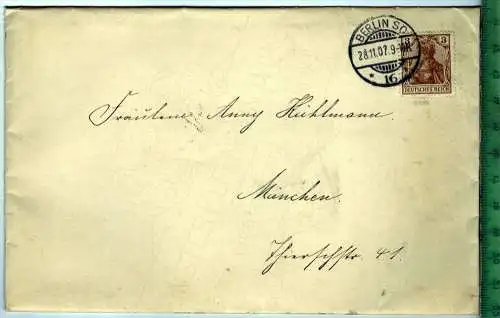 BERLIN S.O.
28.11.07.9-10V.
* 16
3 3
DEUTSCHES REICH
Fräulein Anny Hühlmann.
München.
Thierschstr. 41.